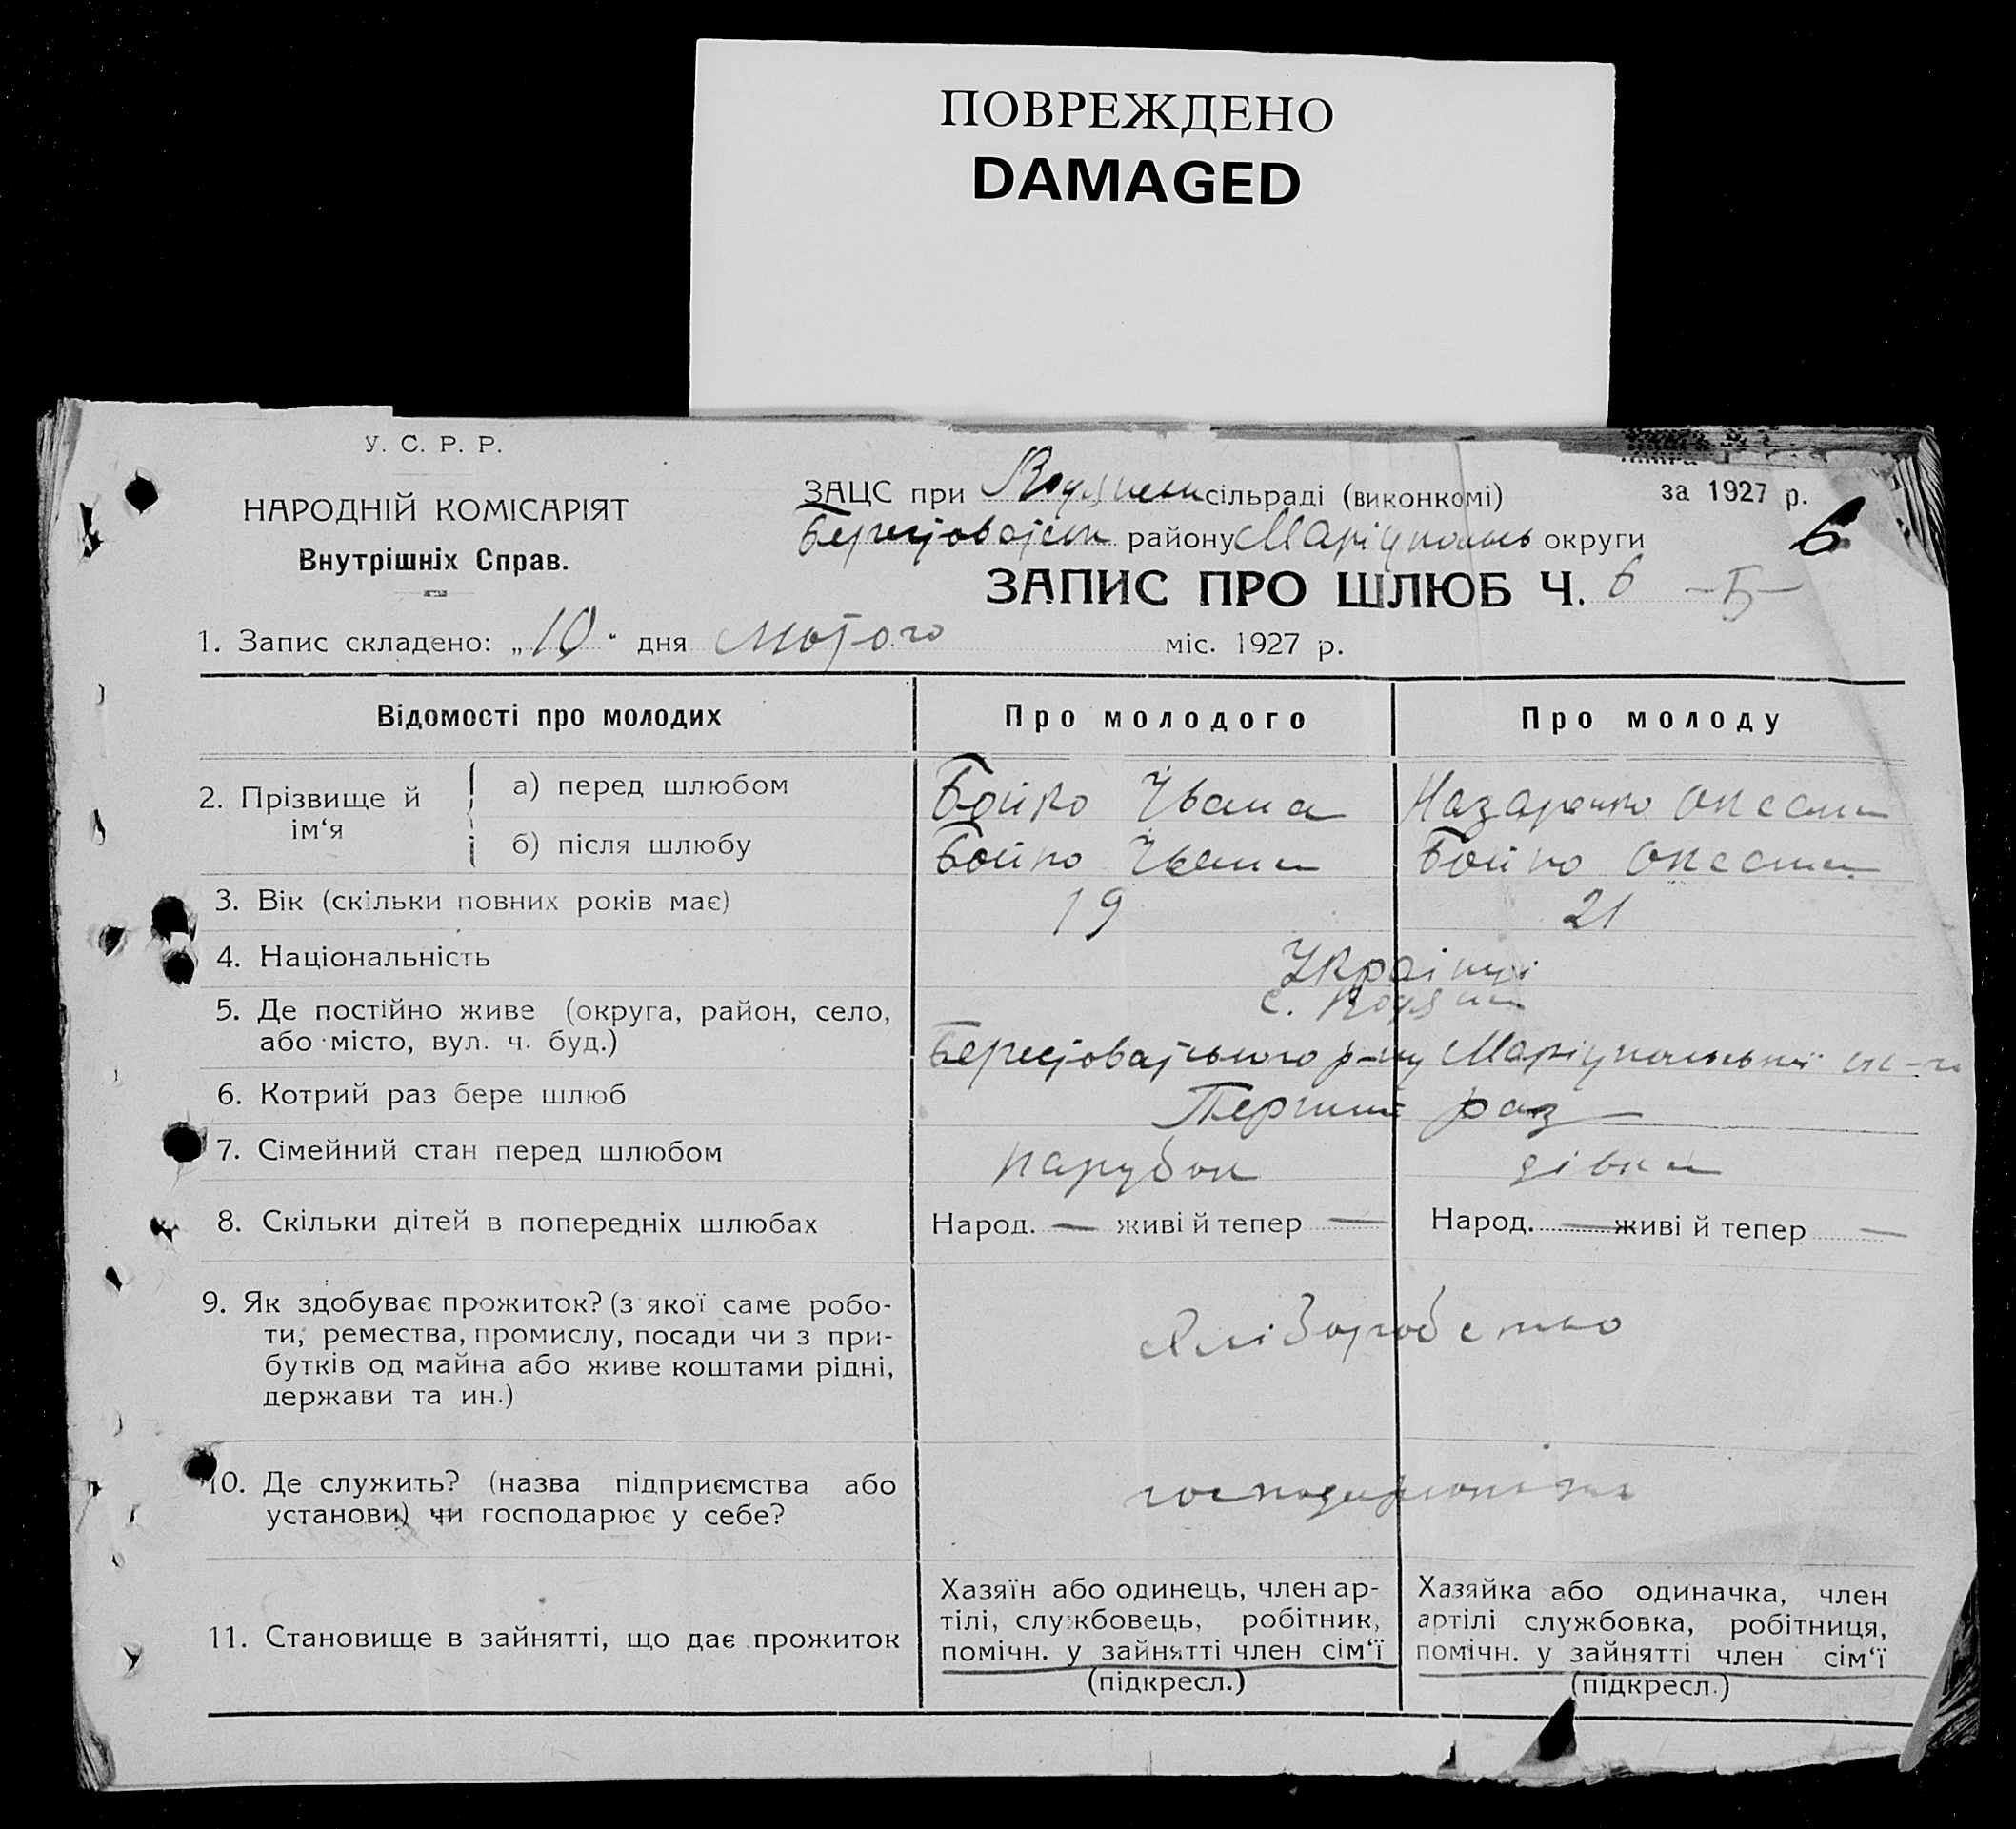 ПОВРЕЖДЕНО
DAMAGED
У. С. Р. Р.
НАРОДНІЙ КОМІСАРІЯТ
Внутрішніх Справ.
ЗАЦС при сільраді (виконкомі)
за 1927 р.
району Маріуполь округи
6
ЗАПИС ПРО ШЛЮБ Ч. 6 -Б-
1. Запис складено: „10“ дня Лютого міс. 1927 р.
Відомості про молодих
Про молодого
Про молоду
2. Прізвище й ім‘я
а) перед шлюбом
Бойко Ивана
Назаренко Оксана
б) після шлюбу
Бойко Ивана
Бойко Оксана
3. Вік (скільки повних років має)
19
21
4. Національність
Українці
5. Де постійно живе (округа, район, село,
або місто, вул. ч. буд.)
с.
р-ну Маріупольської ок-ги
6. Котрий раз бере шлюб
Перший раз
7. Сімейний стан перед шлюбом
парубок
дівка
8. Скільки дітей в попередніх шлюбах
Народ. — живі й тепер —
Народ. — живі й тепер —
9. Як здобуває прожиток? (з якої саме робо-
ти, ремества, промислу, посади чи з при-
бутків од майна або живе коштами рідні,
держави та ин.)
Хліборобство
10. Де служить? (назва підприємства або
установи) чи господарює у себе?
11. Становище в зайнятті, що дає прожиток
Хазяїн або одинець, член ар-
тілі, службовець, робітник,
помічн. у зайнятті член сім‘ї
(підкресл.)
Хазяйка або одиначка, член
артілі службовка, робітниця,
помічн. у зайнятті член сім‘ї
(підкресл.)